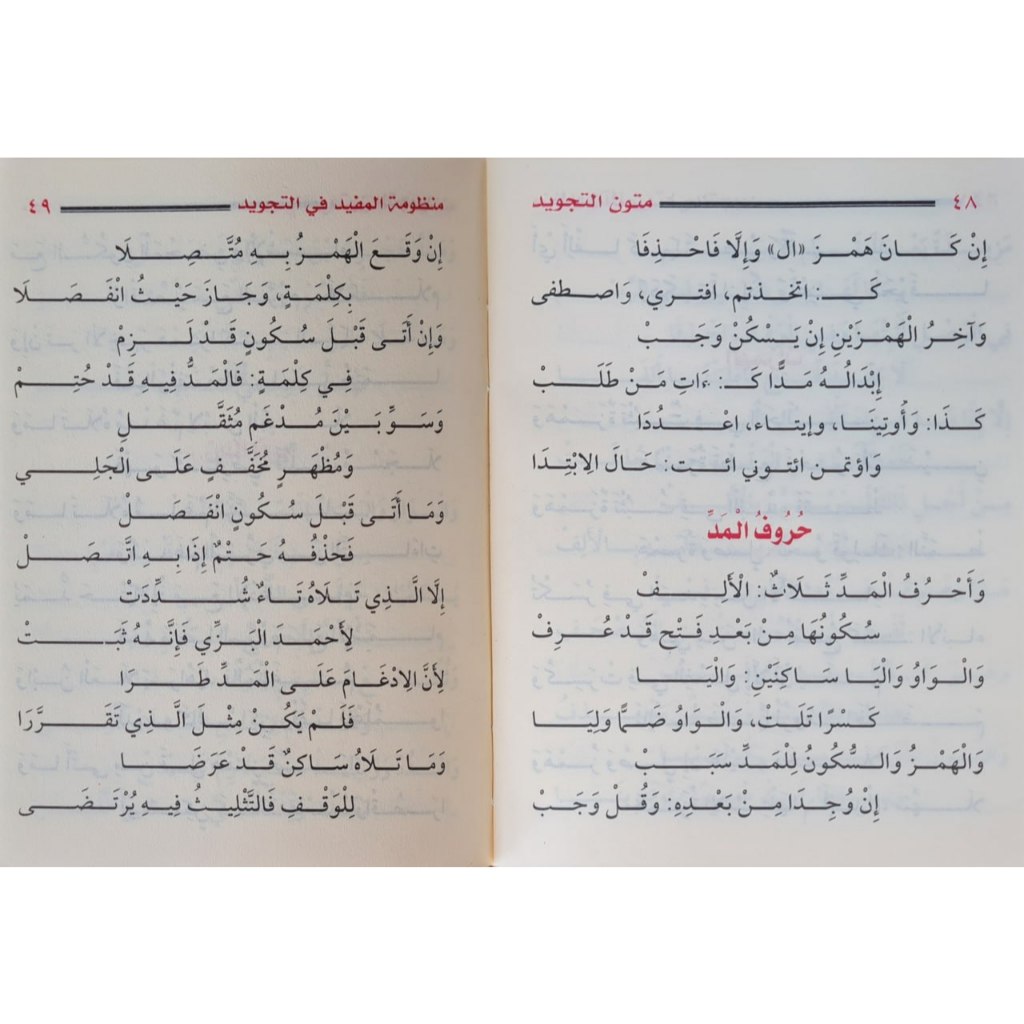 ٤٨ متون التجويد
إِنْ كَـــانَ هَمْـــزَ «ال» وَإِلَّا فَاحْـذِفَا
كَـــ: اتخـذتم، افتـري، وَاصـطفى
وَآخِـرُ الْهَمْـزَيْنِ إِنْ يَـسْـكُنْ وَجَـبْ
إِبْدَالُـهُ مَـدًّا كَـ: ءَاتِ مَـنْ طَلَـبْ
كَـذَا: وَأُوتِينَـا، وإيتـاء، اعْـدُدَا
وَاؤتمـن ائتـوني ائـت: حَـالَ الِابْتِـدَا
حُرُوفُ الْمَدِّ
وَأَحْـرُفُ الْمَـدِّ ثَـلَاثٌ: الْأَلِـفْ
سُكُونُهَا مِـنْ بَعْـدِ فَـتْحٍ قَـدْ عُـرِفْ
وَالْـوَاوُ وَالْيَـا سَـاكِنَيْنِ: وَالْيَـا
كَـسْرًا تَلَـتْ، وَالْـوَاوُ ضَـمًّا وَلِيَـا
وَالْهَمْـزُ وَالـسُّكُونُ لِلْمَـدِّ سَـبَبْ
إِنْ وُجِـدَا مِـنْ بَعْـدِهِ: وَقُـلْ وَجَـبْ
منظومة المفيد في التجويد ٤٩
إِنْ وَقَـعَ الْهَمْـزُ بِـهِ مُتَّـصِلَا
بِكِلْمَـةٍ، وَجَـازَ حَيْـثُ انْفَـصَلَا
وَإِنْ أَتَـى قَبْـلَ سُـكُونٍ قَـدْ لَـزِمْ
فِـي كِلْمَـةٍ: فَالْمَـدُّ فِيـهِ قَـدْ حُتِـمْ
وَسَـوِّ بَـيْنَ مُـدْغَمٍ مُثَقَّـلِ
وَمُظْهَـرٍ مُخَفَّـفٍ عَلَـى الْجَلِـي
وَمَـا أَتَـى قَبْـلَ سُـكُونٍ انْفَـصَلْ
فَحَذْفُـهُ حَـتْمٌ إِذَا بِـهِ اتَّـصَلْ
إِلَّا الَّـذِي تَـلَاهُ تَـاءٌ شُـدِّدَتْ
لِأَحْمَـدَ الْبَـزِّي فَإِنَّـهُ ثَبَـتْ
لِأَنَّ الِادْغَـامَ عَلَـى الْمَـدِّ طَـرَا
فَلَـمْ يَكُـنْ مِثْـلَ الَّـذِي تَقَـرَّرَا
وَمَـا تَـلَاهُ سَـاكِنٌ قَـدْ عَرَضَـا
لِلْوَقْـفِ فَالتَّثْلِيـثُ فِيـهِ يُرْتَـضَى